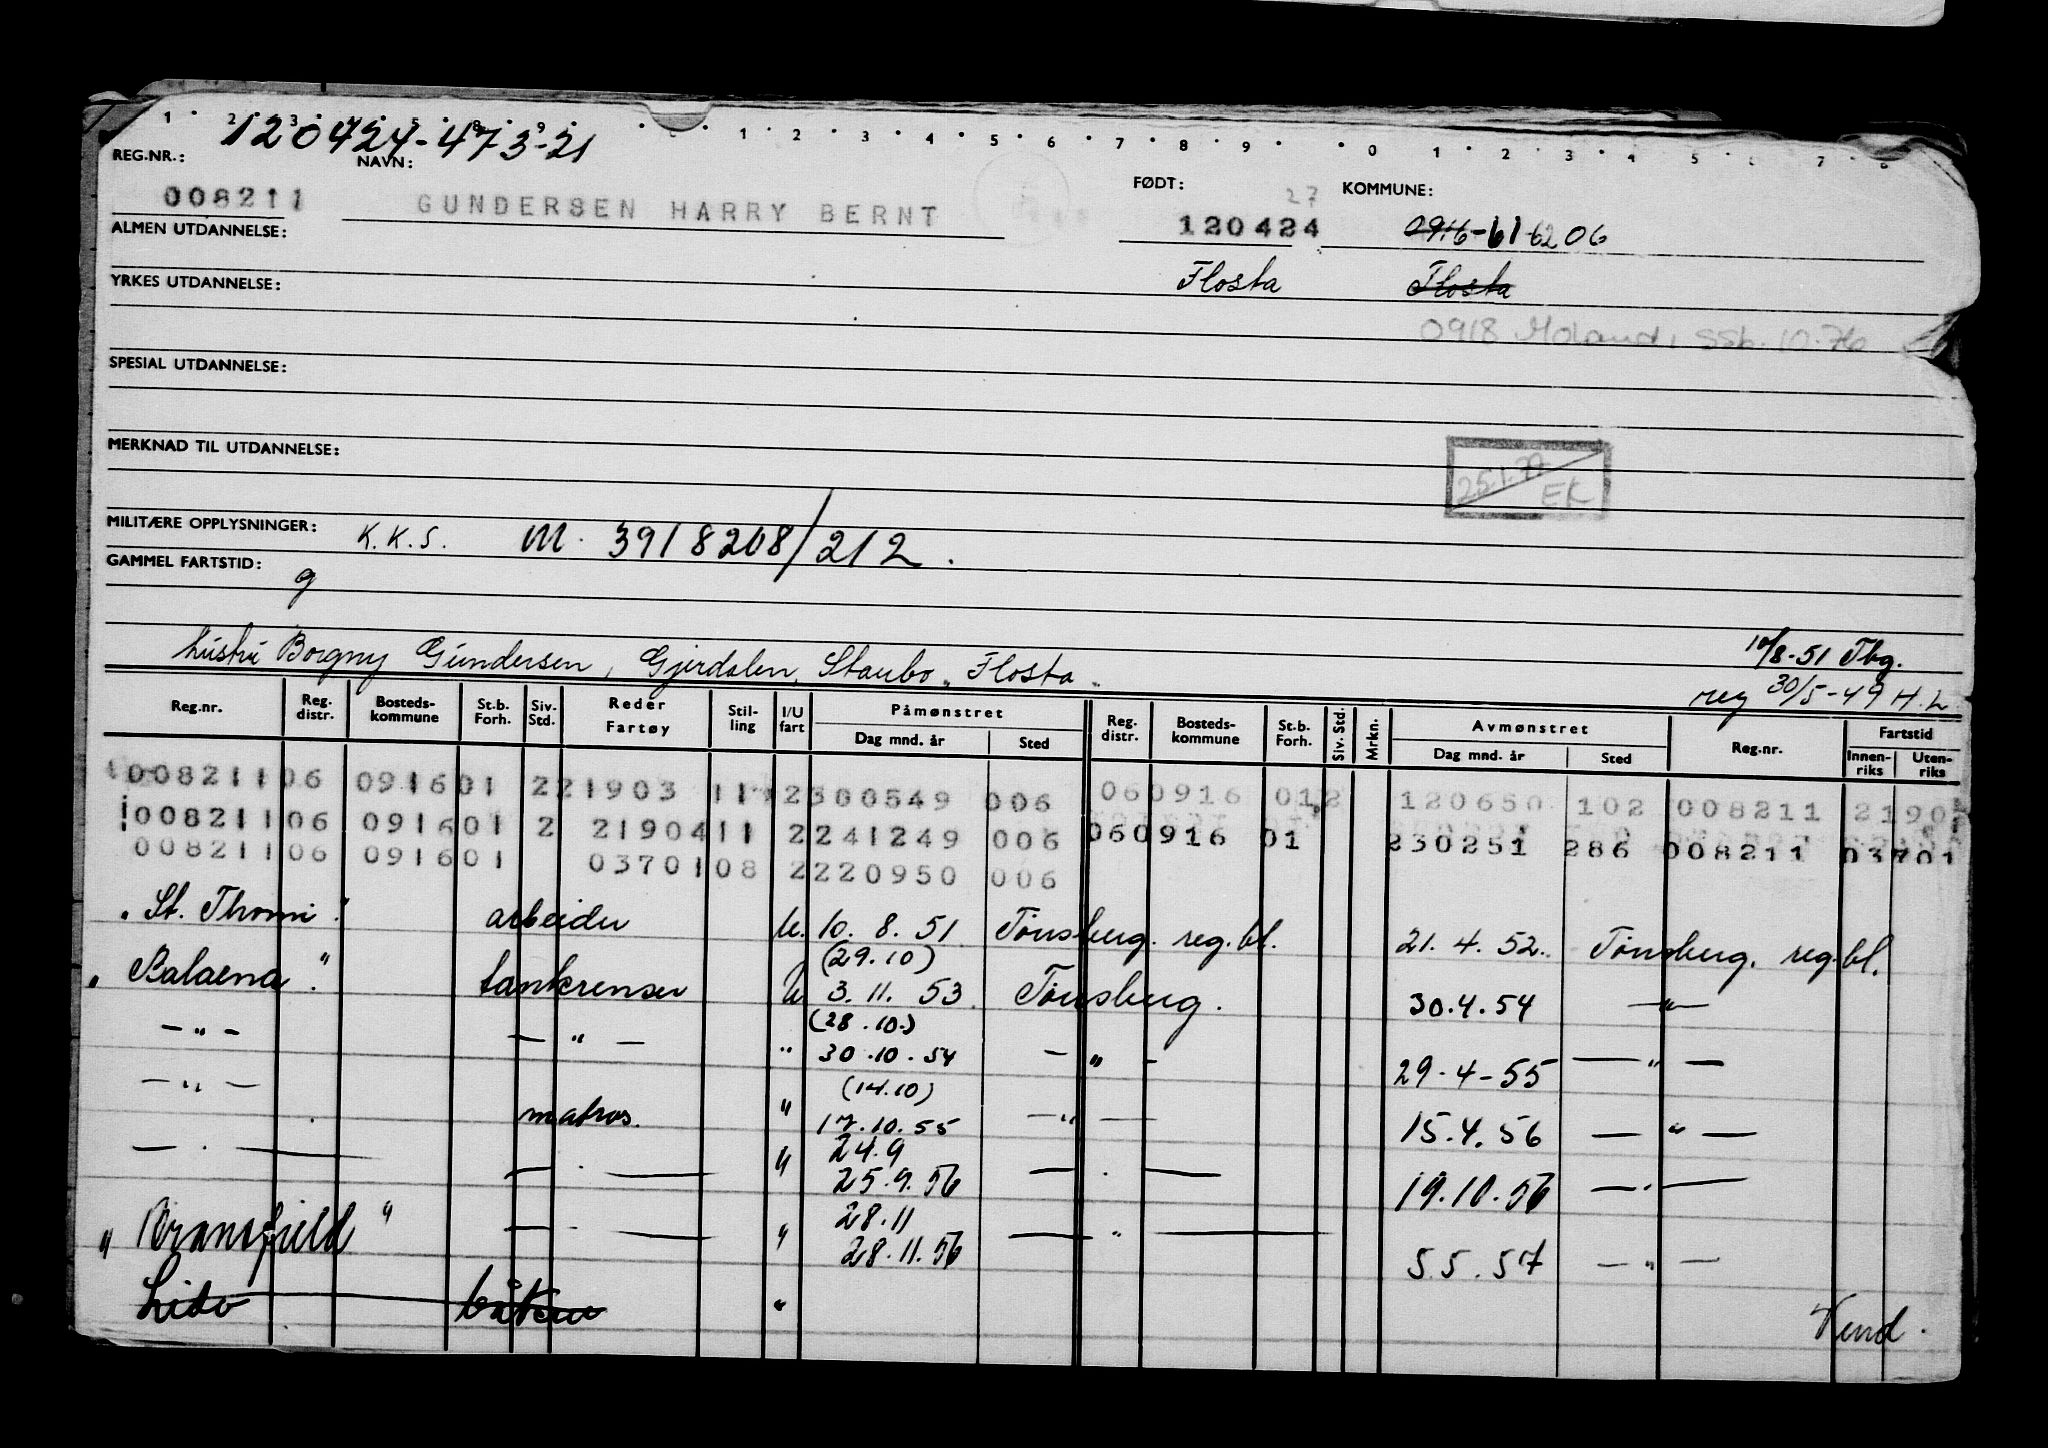 120424-473-21
REG.NR.: NAVN: FØDT: KOMMUNE:
008211 GUNDERSEN HARRY BERNT 120424 27 0916-61-6206
ALMEN UTDANNELSE:
Flosta Flosta
YRKES UTDANNELSE:
0918 Moland, SSb. 10.76
SPESIAL UTDANNELSE:
MERKNAD TIL UTDANNELSE:
25.1.79 EK
MILITÆRE OPPLYSNINGER: K.K.S. M. 3918208/212.
GAMMEL FARTSTID: g
10/8-51 Tbg.
hustru Borgny Gundersen, Gjerdalen, Staubo, Flosta.
reg 30/5-49 H.L
Reg.nr. Reg. distr. Bosteds-kommune St.b. Forh. Siv. Std. Reder Fartøy Stil-ling I/U fart Påmønstret Dag mnd. år Sted Reg. distr. Bosteds-kommune St.b. Forh. Siv. Std. Mrkn. Avmønstret Dag mnd. år Sted Reg.nr. Fartstid Innen-riks Uten-riks
008211 06 0916 01 2 21903 11 2 300549 006 06 0916 01 2 120650 102 008211 2190
008211 06 0916 01 2 21904 11 2 241249 006 06 0916 01 230251 286 008211 03701
008211 06 0916 01 03701 08 2 220950 006
"St. Thomi" arbeider U. 10. 8. 51 Tønsberg. reg.bl. 21. 4. 52. Tønsberg. reg.bl.
(29.10)
"Balaena" tankrenser U 3. 11. 53. Tønsberg. 30.4.54 — " —
(28.10.)
— " — — " — " 30.10.54 — " — 29-4-55 — " —
(14.10)
— " — matros. " 17.10.55 — " — 15.4.56 — " —
24.9
— " — — " — " 25.9.56 — " — 19.10.56 — " —
28.11
"Bransfield" — " — " 28.11.56 — " — 5.5.57 — " —
Lido "
Vend.